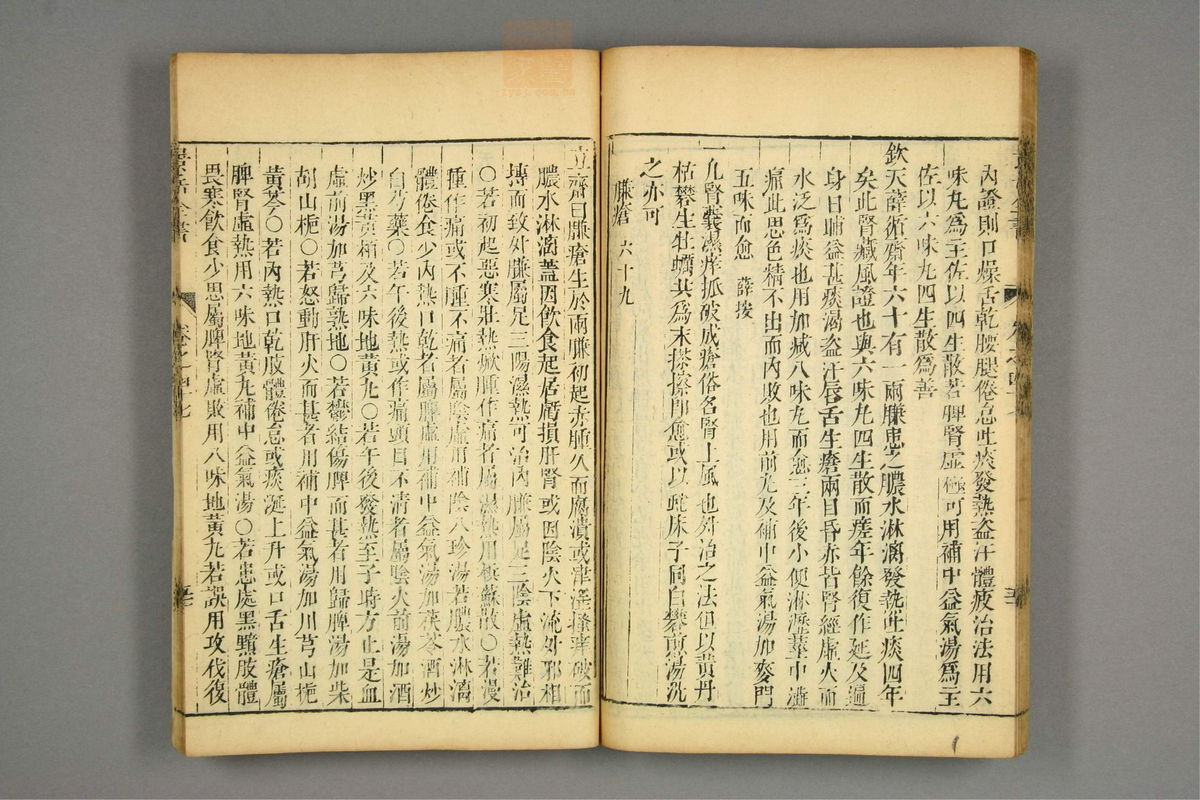 內證則口燥舌乾腰腿倦怠吐痰發熱盜汗體疲治法用六
味丸爲主佐以四生散若脾腎虛極可用補中益氣湯爲主
佐以六味丸四生散爲善
欽天薛循齋年六十有一兩臁患之膿水淋漓發熱吐痰四年
矣此腎臟風證也與六味丸四生散而瘥年餘復作延及遍
身日晡益甚痰渴盜汗唇舌生瘡兩目昏赤皆腎經虛火而
水泛爲痰也用加減八味丸而愈三年後小便淋瀝莖中澁
痛此思色精不出而內敗也用前丸及補中益氣湯加麥門
五味而愈 薛按
一凡腎囊濕痒抓破成瘡俗名腎上風也外治之法但以黃丹
枯礬生牡蠣共爲末搽擦即愈或以蛇床子同白礬煎湯洗
之亦可
臁瘡 六十九
立齋曰臁瘡生於兩臁初起赤腫久而腐潰或津淫搔痒破而
膿水淋漓蓋因飲食起居虧損肝腎或因陰火下流外邪相
摶而致外臁屬足三陽濕熱可治內臁屬足三陰虛熱難治
〇若初起惡寒壯熱焮腫作痛者屬濕熱用檳蘇散〇若漫
腫作痛或不腫不痛者屬陰虛用補陰八珍湯若膿水淋漓
體倦食少內熱口乾者屬脾虛用補中益氣湯加茯苓酒炒
白芍藥〇若午後熱或作痛頭目不清者屬陰火前湯加酒
炒黑黃栢及六味地黃丸〇若午後發熱至子時方止是血
虛前湯加芎歸熟地〇若鬱結傷脾而甚者用歸脾湯加柴
胡山梔〇若怒動肝火而甚者用補中益氣湯加川芎山梔
黃芩〇若內熱口乾肢體倦怠或痰涎上升或口舌生瘡屬
脾腎虛熱用六味地黃丸補中益氣湯〇若患處黑黯肢體
畏寒飲食少思屬脾腎虛敗用八味地黃丸若誤用攻伐復